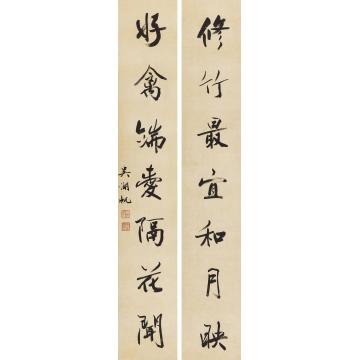 修竹最宜和月映
好禽端愛隔花聞
吳湖帆